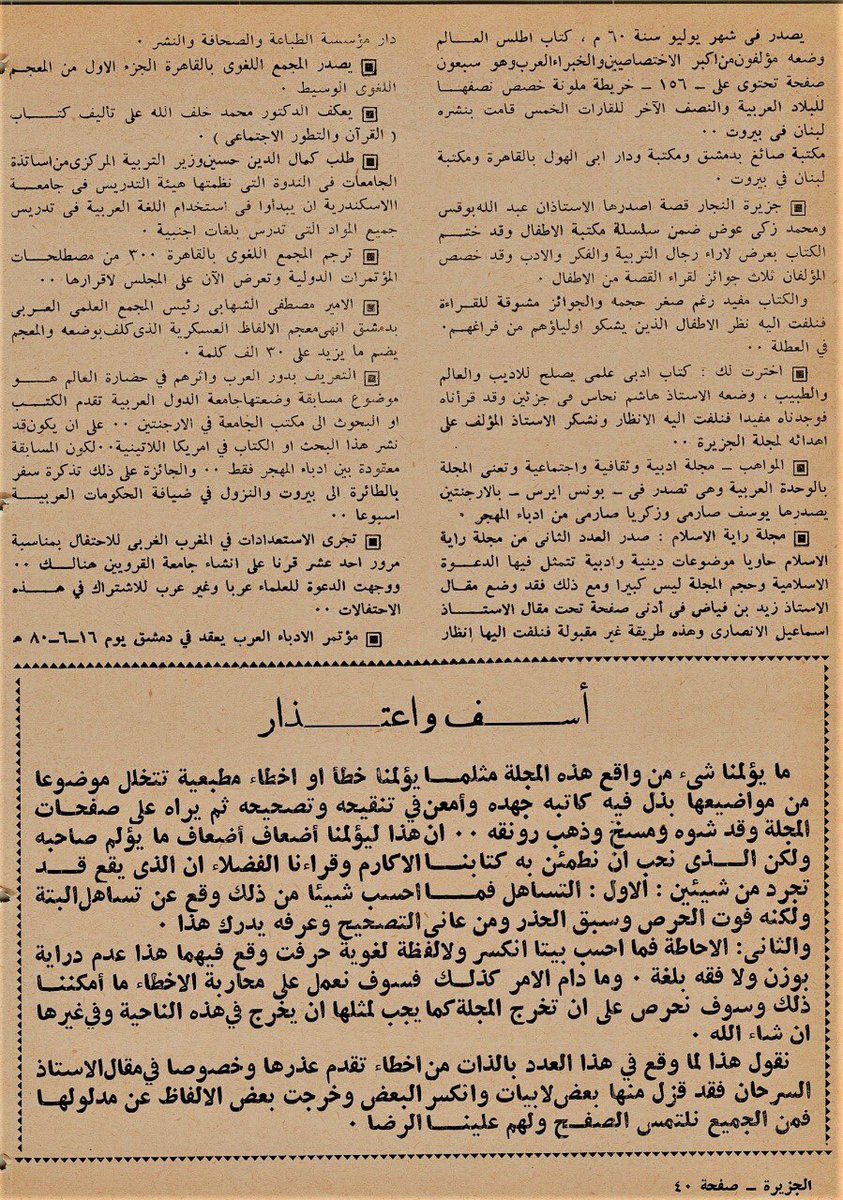 يصدر فى شهر يوليو سنة ٦٠ م ، كتاب اطلس العالم
وضعه مؤلفون من اكبر الاختصاصيين والخبراء العرب وهو سبعون
صفحة تحتوى على ـ ١٥٦ ـ خريطة ملونة خصص نصفها
للبلاد العربية والنصف الآخر للقارات الخمس قامت بنشره
لبنان فى بيروت ٠٠
مكتبة صائغ بدمشق ومكتبة ودار ابى الهول بالقاهرة ومكتبة
لبنان في بيروت ٠
▣ جزيرة النجار قصة اصدرها الاستاذان عبد الله بوقس
ومحمد زكى عوض ضمن سلسلة مكتبة الاطفال وقد ختم
الكتاب بعرض لاراء رجال التربية والفكر والادب وقد خصص
المؤلفان ثلاث جوائز لقراء القصة من الاطفال ٠
والكتاب مفيد رغم صغر حجمه والجوائز مشوقة للقراءة
فنلفت اليه نظر الاطفال الذين يشكو اولياؤهم من فراغهم٠
في العطلة ٠٠
▣ اخترت لك : كتاب ادبى علمى يصلح للاديب والعالم
والطبيب ، وضعه الاستاذ هاشم نحاس فى جزئين وقد قرأناه
فوجدناه مفيدا فنلفت اليه الانظار ونشكر الاستاذ المؤلف على
اهدائه لمجلة الجزيرة ٠٠
▣ المواهب ـ مجلة ادبية وثقافية واجتماعية وتعنى المجلة
بالوحدة العربية وهى تصدر فى ـ بونس ايرس ـ بالارجنتين
يصدرها يوسف صارمى وزكريا صارمى من ادباء المهجر ٠
▣ مجلة راية الاسلام : صدر العدد الثانى من مجلة راية
الاسلام حاويا موضوعات دينية وادبية تتمثل فيها الدعوة
الاسلامية وحجم المجلة ليس كبيرا ومع ذلك فقد وضع مقال
الاستاذ زيد بن فياض فى أدنى صفحة تحت مقال الاستاذ
اسماعيل الانصارى وهذه طريقة غير مقبولة فنلفت اليها انظار
دار مؤسسة الطباعة والصحافة والنشر ٠
▣ يصدر المجمع اللغوى بالقاهرة الجزء الاول من المعجم
اللغوى الوسيط ٠
▣ يعكف الدكتور محمد خلف الله على تاليف كتاب
( القرآن والتطور الاجتماعى ) ٠
▣ طلب كمال الدين حسين وزير التربية المركزى من اساتذة
الجامعات فى الندوة التى نظمتها هيئة التدريس فى جامعة
الاسكندرية ان يبدأوا فى استخدام اللغة العربية فى تدريس
جميع المواد التى تدرس بلغات اجنبية ٠
▣ ترجم المجمع اللغوى بالقاهرة ٣٠٠ من مصطلحات
المؤتمرات الدولية وتعرض الآن على المجلس لاقرارها ٠٠
▣ الامير مصطفى الشهابى رئيس المجمع العلمى العربى
بدمشق انهى معجم الالفاظ العسكرية الذى كلف بوضعه والمعجم
يضم ما يزيد على ٣٠ الف كلمة ٠
▣ التعريف بدور العرب واثرهم في حضارة العالم هو
موضوع مسابقة وضعتها جامعة الدول العربية تقدم الكتب
او البحوث الى مكتب الجامعة في الارجنتين ٠٠ على ان يكون قد
نشر هذا البحث او الكتاب في امريكا اللاتينية٠٠ لكون المسابقة
معقودة بين ادباء المهجر فقط ٠٠ والجائزة على ذلك تذكرة سفر
بالطائرة الى بيروت والنزول في ضيافة الحكومات العربية
اسبوعا ٠٠
▣ تجرى الاستعدادات في المغرب الغربى للاحتفال بمناسبة
مرور احد عشر قرنا على انشاء جامعة القرويين هنالك ٠٠
ووجهت الدعوة للعلماء عربا وغير عرب للاشتراك في هذه
الاحتفالات ٠٠
▣ مؤتمر الادباء العرب يعقد في دمشق يوم ١٦ـ٦ـ٨٠ ه
أسف واعتذار
ما يؤلمنا شىء من واقع هذه المجلة مثلما يؤلمنا خطأ او اخطاء مطبعية تتخلل موضوعا
من مواضيعها بذل فيه كاتبه جهده وأمعن في تنقيحه وتصحيحه ثم يراه على صفحات
المجلة وقد شوه ومسخ وذهب رونقه ٠٠ ان هذا ليؤلمنا أضعاف أضعاف ما يؤلم صاحبه
ولكن الذى نحب ان نطمئن به كتابنا الاكارم وقراءنا الفضلاء ان الذى يقع قد
تجرد من شيئين : الاول : التساهل فما احسب شيئا من ذلك وقع عن تساهل البتة
ولكنه فوت الحرص وسبق الحذر ومن عانى التصحيح وعرفه يدرك هذا ٠
والثانى: الاحاطة فما احسب بيتا انكسر ولا لفظة لغوية حرفت وقع فيهما هذا عدم دراية
بوزن ولا فقه بلغة ٠ وما دام الامر كذلك فسوف نعمل على محاربة الاخطاء ما أمكننا
ذلك وسوف نحرص على ان تخرج المجلة كما يجب لمثلها ان يخرج في هذه الناحية وفي غيرها
ان شاء الله ٠
نقول هذا لما وقع في هذا العدد بالذات من اخطاء تقدم عذرها وخصوصا في مقال الاستاذ
السرحان فقد قزل منها بعض لابيات وانكسر البعض وخرجت بعض الالفاظ عن مدلولها
فمن الجميع نلتمس الصفح ولهم علينا الرضا ٠
الجزيرة ـ صفحة ٤٠